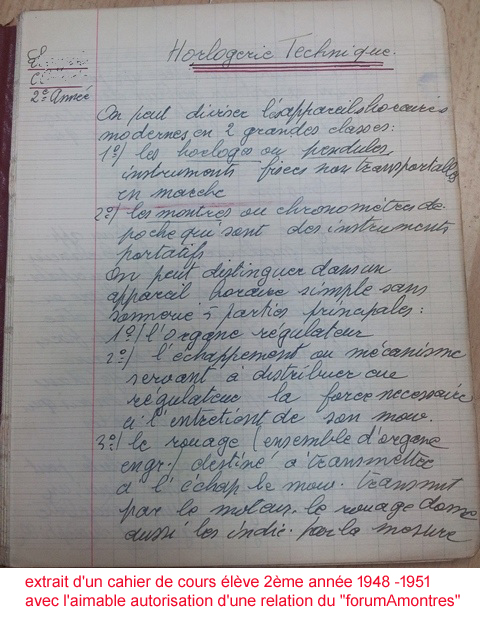 Horlogerie Technique.
2e Année
On peut diviser les appareils horaires
modernes en 2 grandes classes:
1o/ les horloges ou pendules
instruments fixes non transportables
en marche
2o/ les montres ou chronomètres de
poche qui sont des instruments
portatifs
On peut distinguer dans un
appareil horaire simple sans
sonnerie 5 parties principales:
1o/ l'organe régulateur
2o/ l'échappement ou mécanisme
servant à distribuer au
régulateur la force nécessaire
à l'entretient de son mouv.
3o/ le rouage (ensemble d'organe
engr.) destiné a transmettre
à l'échap le mouv. transmit
par le moteur. le rouage donne
aussi les indic. par la mesure
extrait d'un cahier de cours élève 2ème année 1948 -1951
avec l'aimable autorisation d'une relation du "forumAmontres"